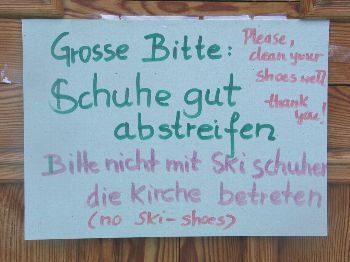 Grosse Bitte:
Schuhe gut
abstreifen
Please,
clean your
shoes well!
thank
you!
Bitte nicht mit Skischuhen
die Kirche betreten
(no Ski-shoes)